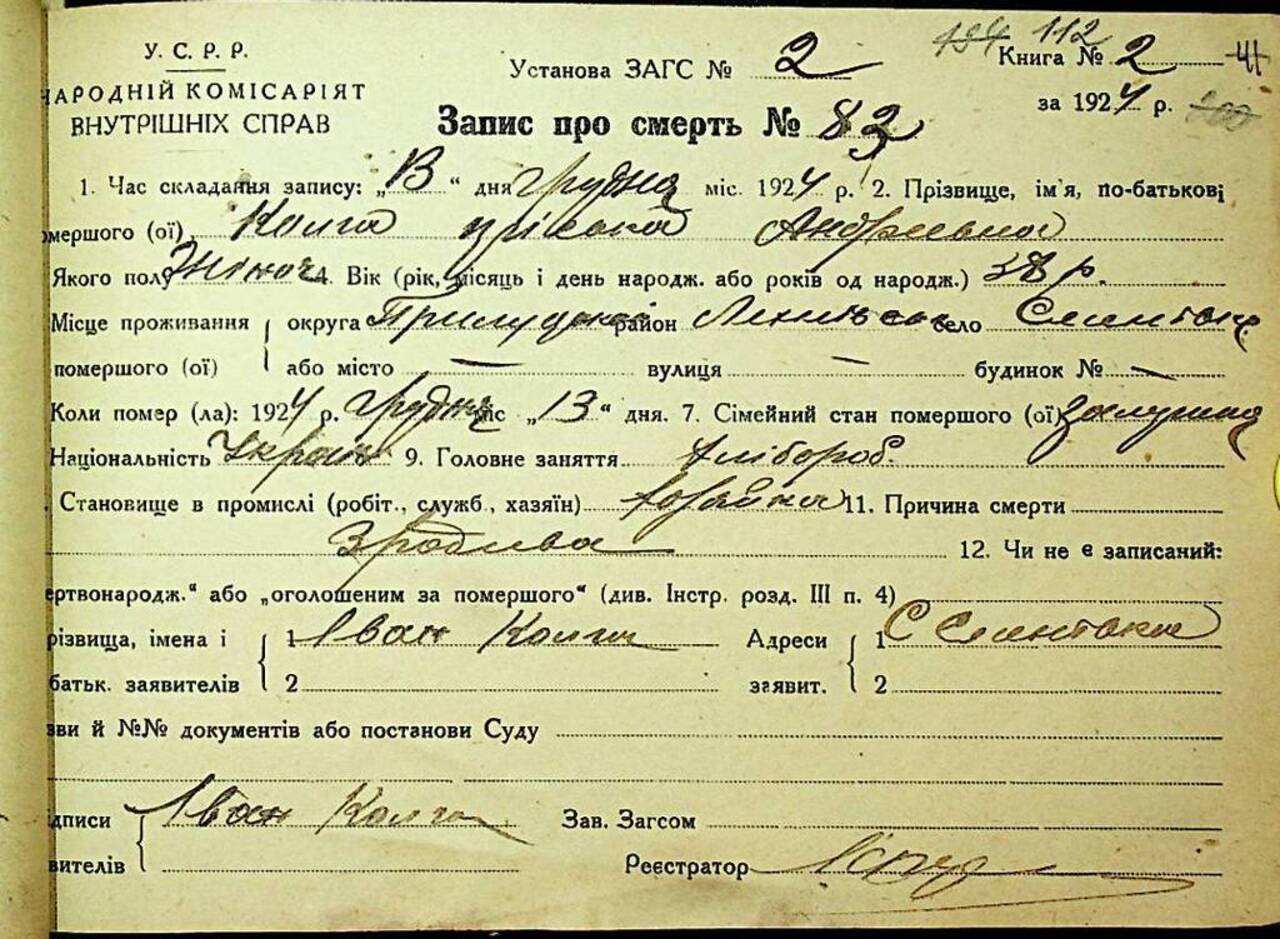 У. С. Р. Р.
АРОДНІЙ КОМІСАРІЯТ
ВНУТРІШНІХ СПРАВ
Установа ЗАГС № 2
112 Книга № 2 41
за 1924 р.
Запис про смерть № 83
1. Час складання запису: „ “ дня грудня міс. 1924 р. 2. Прізвище, ім'я, по-батькові
омершого (ої) Колга Андріевна
Якого полу Жіноч 4. Вік (рік, місяць і день народж. або років од народж.) 38 р.
Місце проживання округа Прилуцької район село
помершого (ої) або місто — вулиця — будинок № —
Коли помер (ла): 1924 р. грудня міс „13“ дня. 7. Сімейний стан помершого (ої) замужня
Національність Україн 9. Головне заняття Хлібороб.
Становище в промислі (робіт., служб., хазяїн) Хозайка 11. Причина смерти
12. Чи не є записаний:
ертвонародж.“ або „оголошеним за помершого“ (див. Інстр. розд. III п. 4)
різвища, імена і 1 Іван Колга Адреси 1 С
батьк. заявителів 2 заявит. 2
зви й №№ документів або постанови Суду
дписи Іван Колга Зав. Загсом
вителів Реєстратор